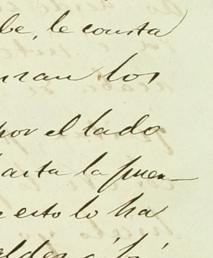 be, le consta
uran los
por el lado
hasta la puen-
e esto lo ha